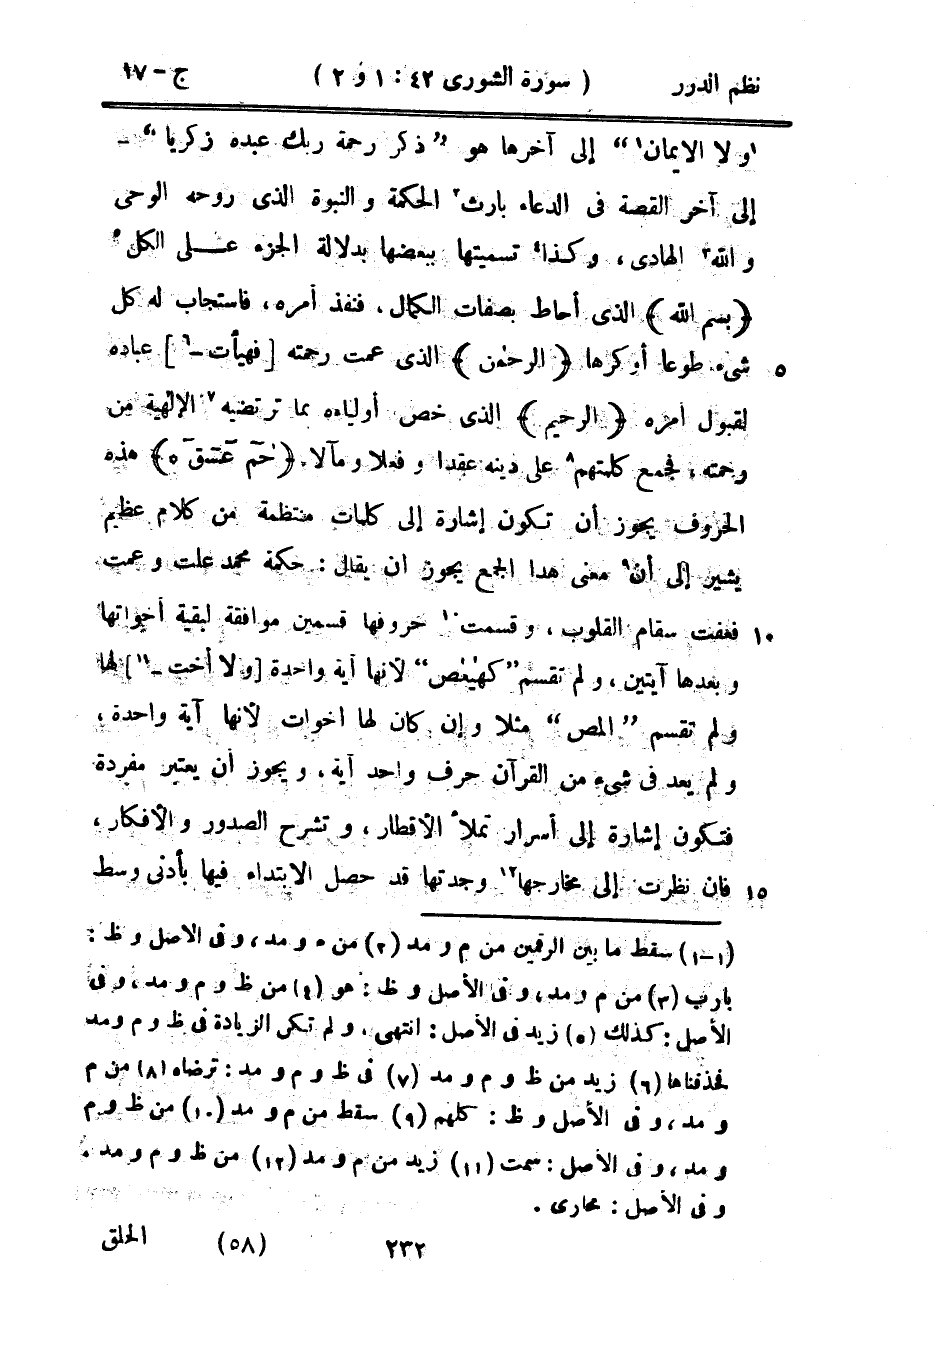 نظم الدرر ( سورة الشورى ٤٢ : ١ و ٢ ) ج - ١٧
١و لا الايمان١“ إلى آخرها هو ”ذكر رحمة ربك عبده زكريا“ -
إلى آخر القصة فى الدعاء بارث٢ الحكمة و النبوة الذى روحه الوحى
و الله٣ الهادى، و كذا٤ تسميتها ببعضها بدلالة الجزء على الكل٥
﴿بسم الله﴾ الذى أحاط بصفات الكمال، فنفذ أمره، فاستجاب له كل
٥ شىء طوعا أو كرها ﴿الرحمٰن﴾ الذى عمت رحمته [فهيأت -٦] عباده
لقبول أمره ﴿الرحيم﴾ الذى خص أولياءه بما ترتضيه٧ الإلٰهية من
رحمته، فجمع كلمتهم٨ على دينه عقدا و فعلا و مآلا. ﴿حٰمٓ عٓسٓقٓ ه﴾ هذه
الحروف يجوز أن تكون إشارة إلى كلمات منتظمة من كلام عظيم
يشير إلى أن٩ معنى هذا الجمع يجوز ان يقال: حكمة محمد علت و عمت
١٠ فعفت سقام القلوب، و قسمت١٠ حروفها قسمين موافقة لبقية أخواتها
و بعدها آيتين، و لم تقسم ”كهيٰعص“ لأنها آية واحدة [و لا أخت -١١] لها
و لم تقسم ”المص“ مثلا و إن كان لها اخوات لأنها آية واحدة،
و لم يعد فى شىء من القرآن حرف واحد آية، و يجوز أن يعتبر مفردة
فتكون إشارة إلى أسرار تملأ الأقطار، و تشرح الصدور و الأفكار،
١٥ فان نظرت إلى مخارجها١٢ وجدتها قد حصل الابتداء فيها بأدنى وسط
(١-١) سقط ما بين الرقمين من م و مد (٢) من م و مد، و فى الاصل و ظ :
بارب (٣) من م و مد، و فى الأصل و ظ : هو (٤) من ظ و م و مد، و فى
الأصل : كذلك (٥) زيد فى الأصل : انتهى، و لم تكن الزيادة فى ظ و م ومد
فحذفناها (٦) زيد من ظ و م و مد (٧) فى ظ و م و مد : ترضاه (٨) من م
و مد، و فى الأصل و ظ : كلهم (٩) سقط من م و مد (١٠) من ظ و م
و مد، و فى الأصل : سمت (١١) زيد من م و مد (١٢) من ظ و م و مد.
و فى الأصل : مجارى .
٢٣٢ (٥٨) الحلق